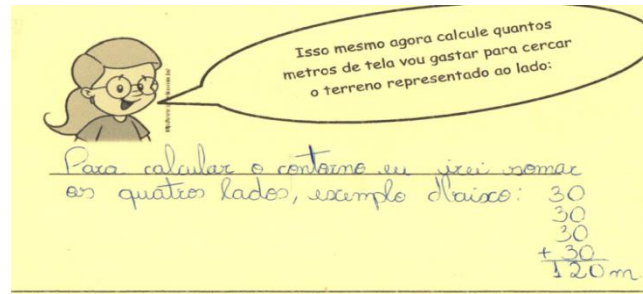 Isso mesmo agora calcule quantos
metros de tela vou gastar para cercar
o terreno representado ao lado:
Para calcular o contorno eu irei somar
os quatros lados, exemplo abaixo:
30
30
30
+ 30
120 m